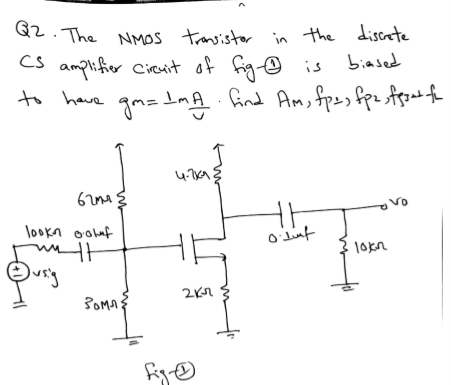 Q2. The NMOS transistor in the discrete
CS amplifier circuit of fig-① is biased
to have gm= 1mA/V. find AM, fP1, fP2, fP3 and fL
4.7kΩ
62MΩ
100kΩ 0.01uf
0.1uf
VO
10kΩ
vsig
30MΩ
2kΩ
fig-①